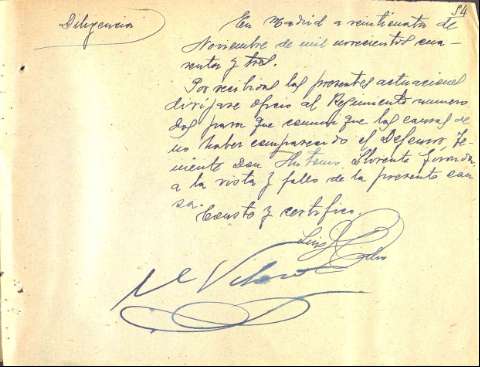 84
Diligencia
En Madrid a veinticuatro de
Noviembre de mil novecientos cua-
renta y tres.
Por recibidas las presentes actuaciones
dirijase oficio al Regimiento numero
dos para que comunique las causas de
no haber comparecido el Defensor Te-
niente don Antonio Llorente
a la vista y fallo de la presente cau-
sa.
Consto y certifico.
Luis